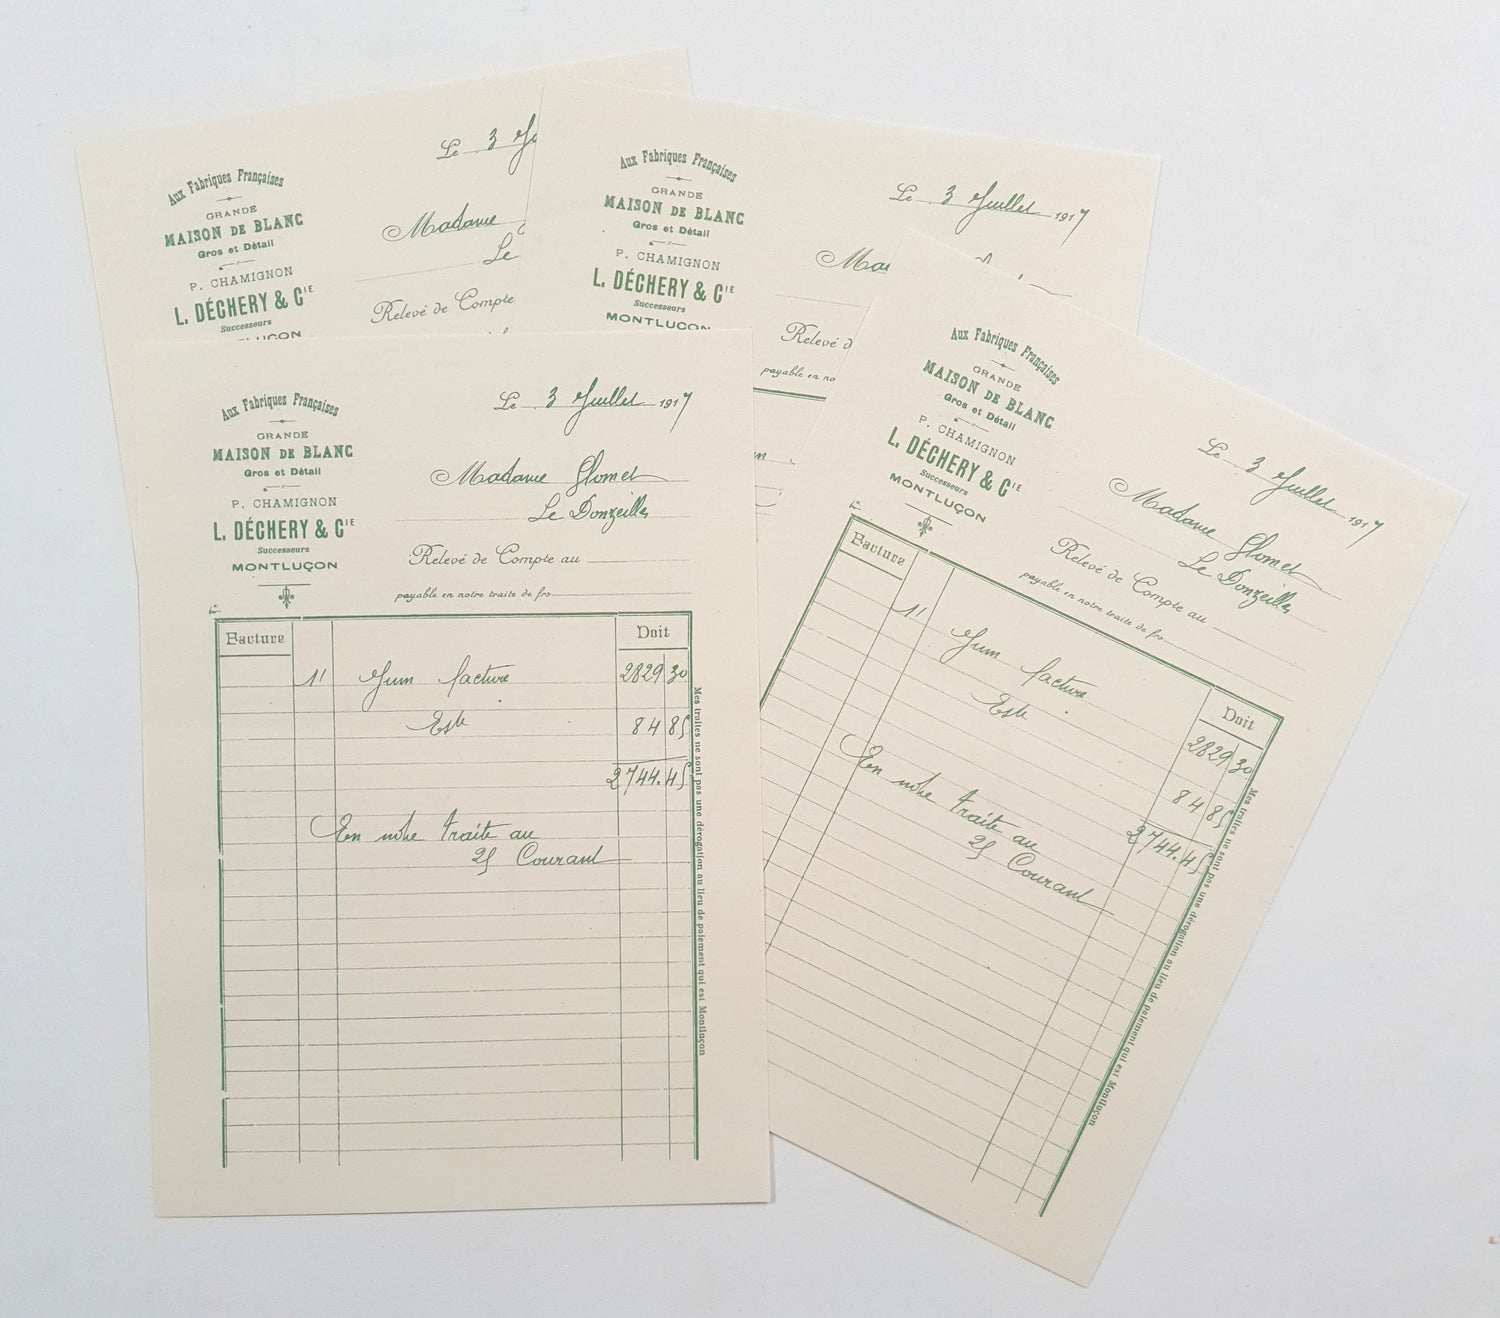 Aux Fabriques Françaises
GRANDE
MAISON DE BLANC
Gros et Détail
P. CHAMIGNON
L. DÉCHERY & Cie
Successeurs
Le 3
Madame
Le
Relevé de Compte
Aux Fabriques Françaises
GRANDE
MAISON DE BLANC
Gros et Détail
P. CHAMIGNON
L. DÉCHERY & CIE
Successeurs
MONTLUÇON
Le 3 Juillet 1917
Relevé d
payable en no
Aux Fabriques Françaises
GRANDE
MAISON DE BLANC
Gros et Détail
P. CHAMIGNON
L. DÉCHERY & CIE
Successeurs
MONTLUÇON
Le 3 Juillet 1917
Madame Glomet
Le Donzeilles
Relevé de Compte au
payable en notre traite de frs
Facture Doit
11 Juin facture 2829 30
Este 84 85
2744.45
En notre traite au
25 Courant
Mes traites ne sont pas une dérogation au lieu de paiement qui est Montluçon
Aux Fabriques Françaises
GRANDE
MAISON DE BLANC
Gros et Détail
P. CHAMIGNON
L. DÉCHERY & CIE
Successeurs
MONTLUÇON
Le 3 Juillet 1917
Madame Glomet
Le Donzeilles
Relevé de Compte au
payable en notre traite de frs
Facture Doit
11 Juin facture 2829 30
Este 84 85
2744.45
En notre traite au
25 Courant
Mes traites ne sont pas une dérogation au lieu de paiement qui est Montluçon